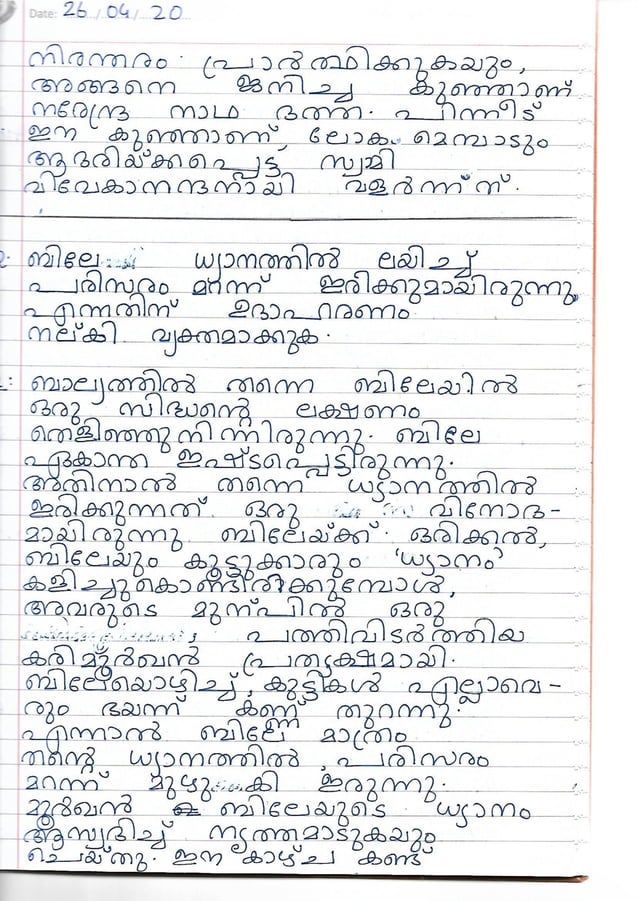 Date: 26 / 04 / 20
നിരന്തരം പ്രാർത്ഥിക്കുകയും,
അങ്ങനെ ജനിച്ച കുഞ്ഞാണ്
നരേന്ദ്ര നാഥ ദത്ത. പിന്നീട്
ഈ കുഞ്ഞാണ്, ലോകം മെമ്പാടും
ആദരിയ്ക്കപ്പെട്ട സ്വാമി
വിവേകാനന്ദനായി വളർന്ന്ന്.
2. ബിലേ ധ്യാനത്തിൽ ലയിച്ച്
പരിസരം മറന്ന് ഇരിക്കുമായിരുന്നു
എന്നതിന് ഉദാഹരണം
നല്കി വ്യക്തമാക്കുക.
ബാല്യത്തിൽ തന്നെ ബിലേയിൽ
ഒരു സിദ്ധൻ്റെ ലക്ഷണം
തെളിഞ്ഞുനിന്നിരുന്നു. ബിലേ
ഏകാന്ത ഇഷ്ടപ്പെട്ടിരുന്നു.
അതിനാൽ തന്നെ ധ്യാനത്തിൽ
ഇരിക്കുന്നത് ഒരു വിനോദ-
മായിരുന്നു ബിലേയ്ക്ക്. ഒരിക്കൽ,
ബിലേയും കൂട്ടുക്കാരും 'ധ്യാനം'
കളിച്ചുകൊണ്ടിരിക്കുമ്പോൾ,
അവരുടെ മുന്പിൽ ഒരു
, പത്തിവിടർത്തിയ
കരിമൂർഖൻ പ്രത്യക്ഷമായി.
ബിലേയൊഴിച്ച്, കുട്ടികൾ എല്ലാവെ-
രും ഭയന്ന് കണ്ണ് തുറന്നു.
എന്നാൽ ബിലേ മാത്രം
തൻ്റെ ധ്യാനത്തിൽ, പരിസരം
മറന്ന് ഇരുന്നു.
മൂർഖൻ ബിലേയുടെ ധ്യാനം
ആസ്വദിച്ച് നൃത്തമാടുകയും
ചെയ്തു. ഈ കാഴ്ച കണ്ട്